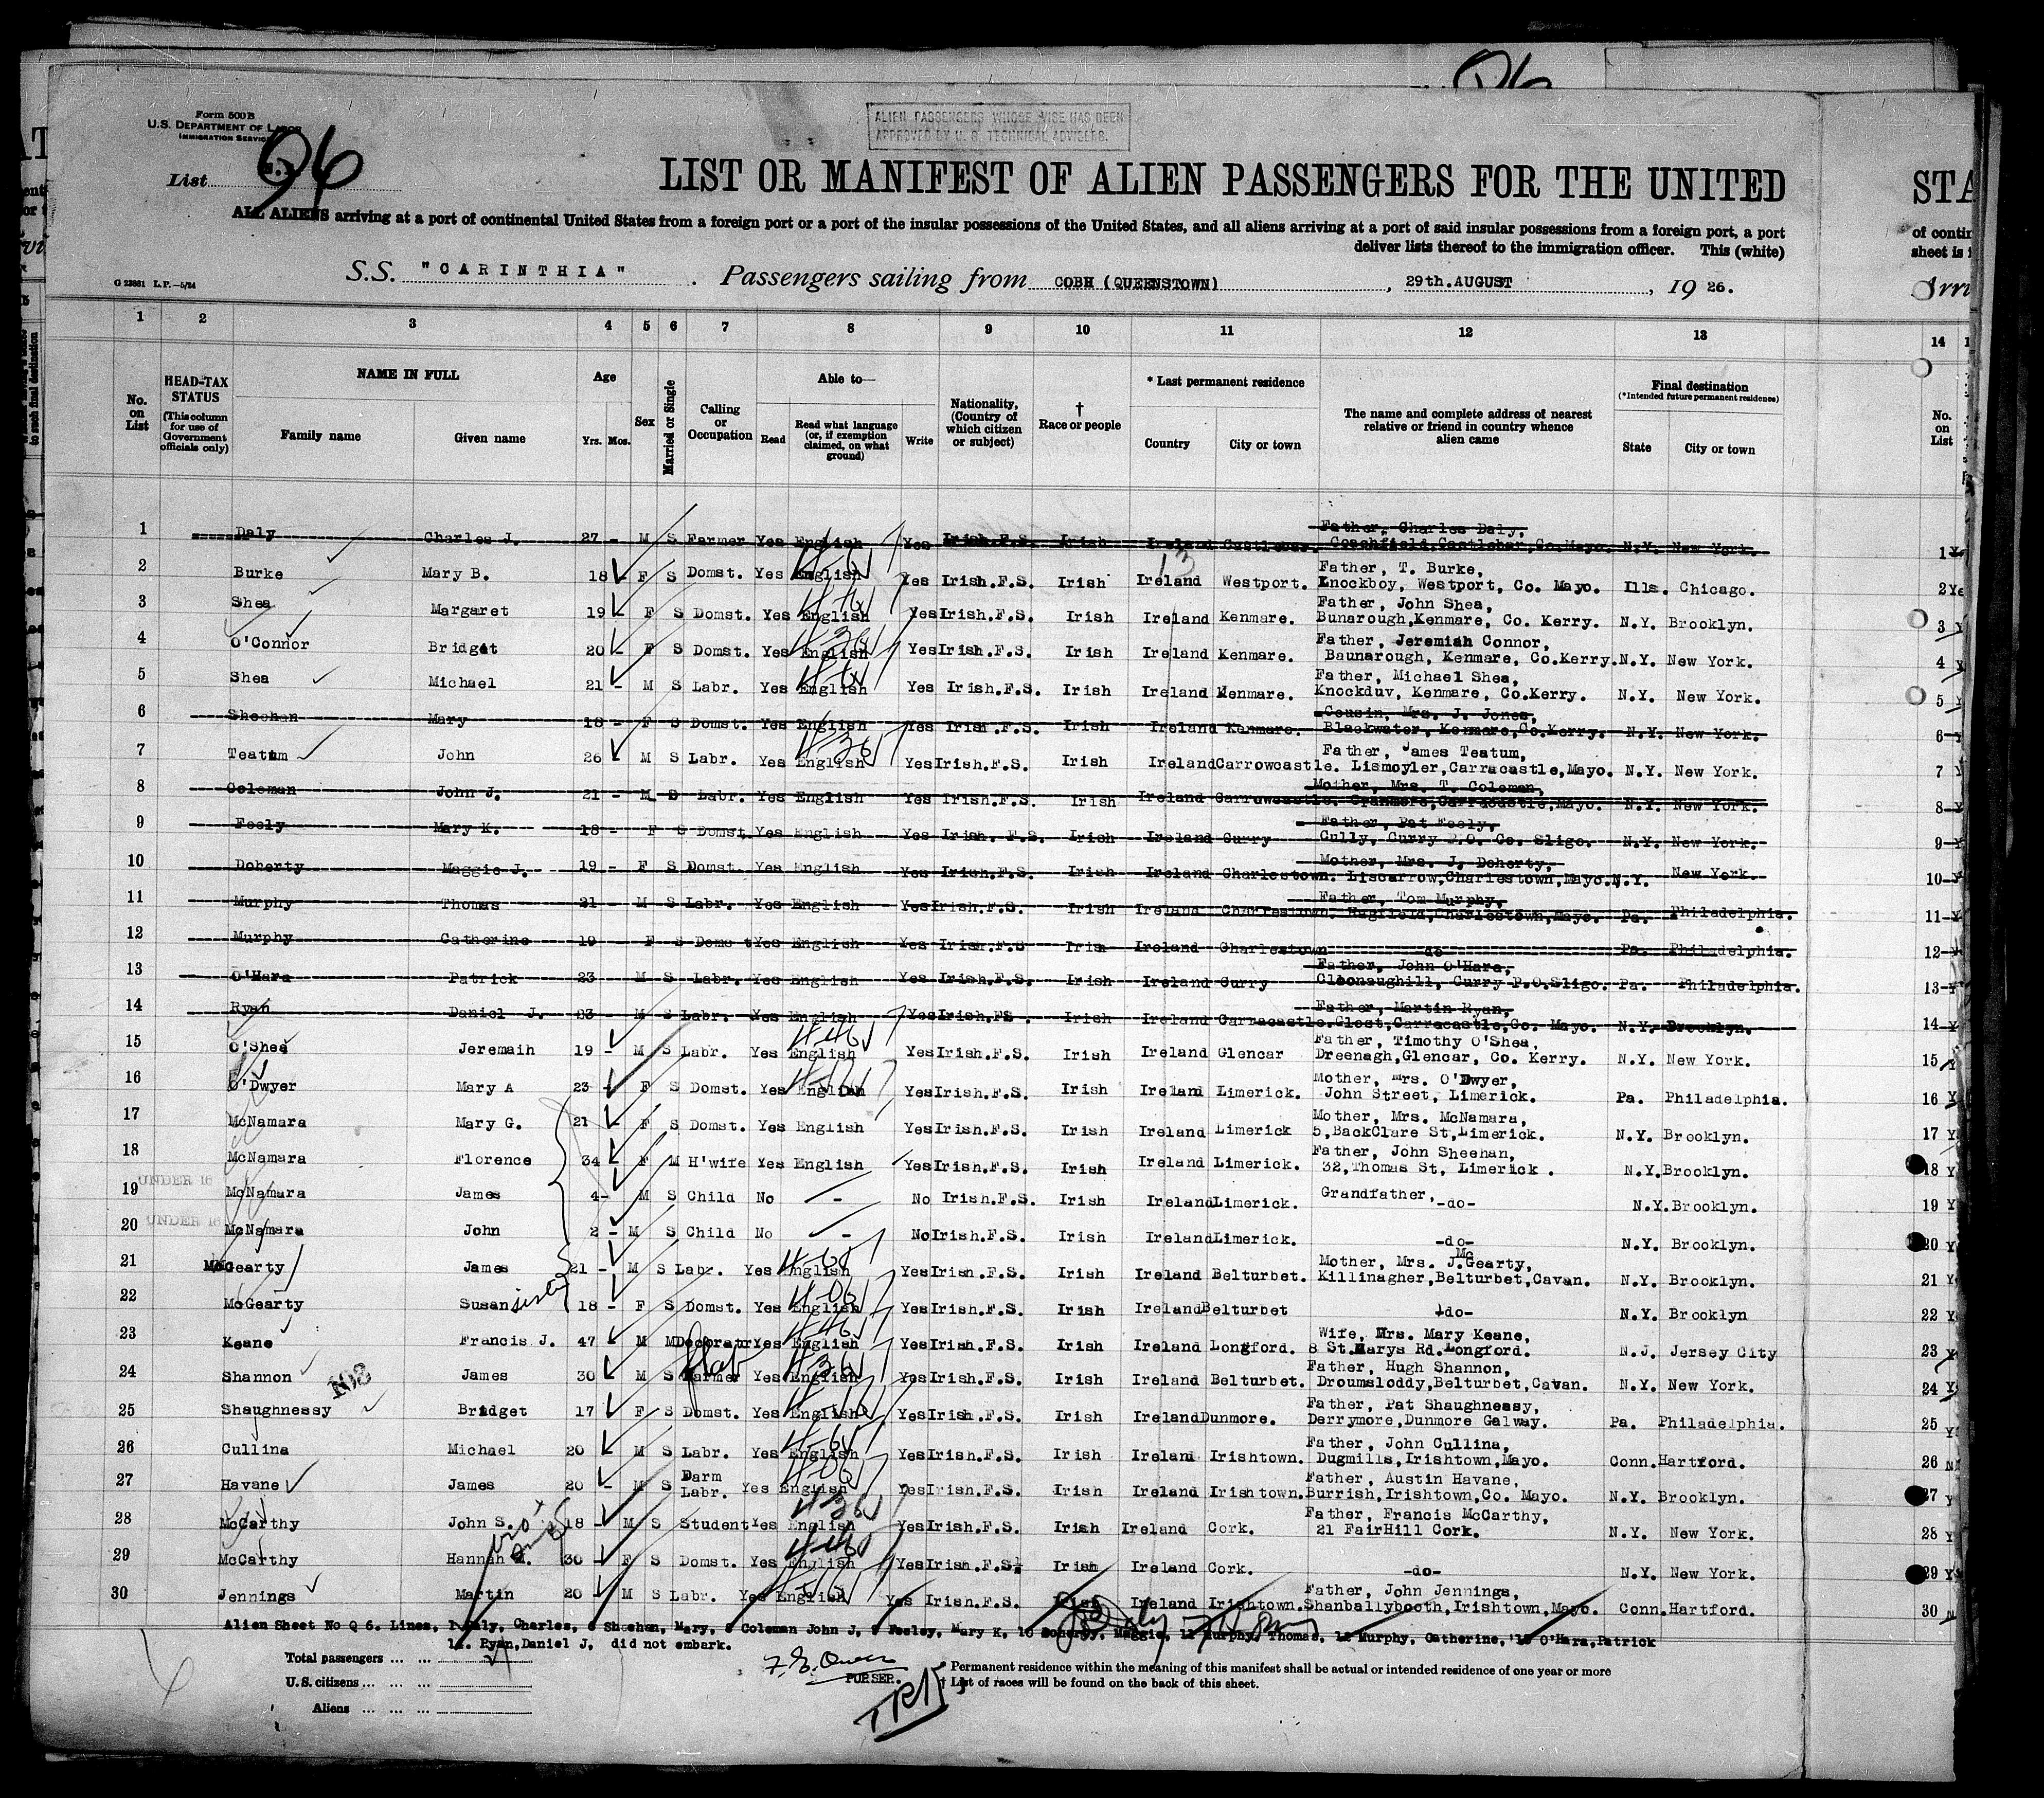 Form 500 B
U.S. DEPARTMENT OF LABOR
IMMIGRATION SERVICE
ALIEN PASSENGERS WHOSE VISE HAS BEEN
APPROVED BY U. S. TECHNICAL ADVISERS.
96
List
LIST OR MANIFEST OF ALIEN PASSENGERS FOR THE UNITED
STA
ALL ALIENS arriving at a port of continental United States from a foreign port or a port of the insular possessions of the United States, and all aliens arriving at a port of said insular possessions from a foreign port, a port
deliver lists thereof to the immigration officer. This (white)
S.S. "CARINTHIA" Passengers sailing from COBH (QUEENSTOWN), 29th.AUGUST, 19 26.
G 23881 L.P.—5/24
1 2 3 4 5 6 7 8 9 10 11 12 13 14
No. on List
HEAD-TAX STATUS
(This column for use of Government officials only)
NAME IN FULL
Family name Given name
Age
Yrs. Mos.
Sex
Married or Single
Calling or Occupation
Able to—
Read Read what language (or, if exemption claimed, on what ground) Write
Nationality, (Country of which citizen or subject)
† Race or people
* Last permanent residence
Country City or town
The name and complete address of nearest relative or friend in country whence alien came
Final destination
(*Intended future permanent residence)
State City or town
No. on List
1 Daly Charles J. 27 - M S Farmer Yes English Yes Irish.F.S. Irish Ireland Castlebar. Father, Charles Daly, Castlebar,Co.Mayo. N.Y. New York. 1
2 Burke Mary B. 18 - F S Domst. Yes English Yes Irish.F.S. Irish Ireland Westport. Father, T. Burke, Knockboy, Westport, Co. Mayo. Ills. Chicago. 2
3 Shea Margaret 19 - F S Domst. Yes English Yes Irish.F.S. Irish Ireland Kenmare. Father, John Shea, Bunarough,Kenmare, Co. Kerry. N.Y. Brooklyn. 3
4 O'Connor Bridget 20 - F S Domst. Yes English Yes Irish.F.S. Irish Ireland Kenmare. Father, Jeremiah Connor, Baunarough, Kenmare, Co.Kerry. N.Y. New York. 4
5 Shea Michael 21 - M S Labr. Yes English Yes Irish.F.S. Irish Ireland Kenmare. Father, Michael Shea, Knockduv, Kenmare, Co.Kerry. N.Y. New York. 5
6 Sheehan Mary 18 - F S Domst. Yes English Yes Irish.F.S. Irish Ireland Kenmare. Cousin, Mrs. J. Jones, Blackwater, Kenmare,Co.Kerry. N.Y. New York. 6
7 Teatum John 26 M S Labr. Yes English Yes Irish.F.S. Irish Ireland Carrowcastle. Father, James Teatum, Lismoyler,Carracastle,Mayo. N.Y. New York. 7
8 Coleman John J. 21 - M S Labr. Yes English Yes Irish.F.S. Irish Ireland Carrowcastle. Mother, Mrs. T. Coleman, Cranmore,Carracastle,Mayo. N.Y. New York. 8
9 Feely Mary K. 18 - F S Domst Yes English Yes Irish. F.S. Irish Ireland Curry Father, Pat Feely, Cully, Curry P.O. Co. Sligo. N.Y. New York. 9
10 Doherty Maggie J. 19 - F S Domst. Yes English Yes Irish.F.S. Irish Ireland Charlestown. Mother, Mrs. J. Doherty, Liscarrow,Charlestown,Mayo. N.Y. New York. 10
11 Murphy Thomas 21 - M S Labr. Yes English Yes Irish.F.S. Irish Ireland Charlestown, Father, Tom Murphy, Charlestown,Mayo. Pa. Philadelphia. 11
12 Murphy Catherine 19 F S Domst Yes English Yes Irish.F.S Irish Ireland Charlestown do Pa. Philadelphia. 12
13 O'Hara Patrick 23 M S Labr. Yes English Yes Irish.F.S. Irish Ireland Curry Father, John O'Hara, Cloonaughill, Curry P.O.Sligo. Pa. Philadelphia. 13
14 Ryan Daniel J. 23 - M S Labr. Yes English Yes Irish.FS. Irish Ireland Carracastle. Father, Martin Ryan, Clost,Carracastle,Co. Mayo. N.Y. Brooklyn. 14
15 O'Shea Jeremaih 19 - M S Labr. Yes English Yes Irish.F.S. Irish Ireland Glencar Father, Timothy O'Shea, Dreenagh,Glencar, Co. Kerry. N.Y. New York. 15
16 O'Dwyer Mary A 23 - F S Domst. Yes English Yes Irish.F.S. Irish Ireland Limerick. Mother, Mrs. O'Dwyer, John Street, Limerick. Pa. Philadelphia. 16
17 McNamara Mary G. 21 - F S Domst. Yes English Yes Irish.F.S. Irish Ireland Limerick Mother, Mrs. McNamara, 5,BackClare St,Limerick. N.Y. Brooklyn. 17
18 McNamara Florence 34 F M H'wife Yes English Yes Irish.F.S. Irish Ireland Limerick. Father, John Sheehan, 32,Thomas St, Limerick . N.Y. Brooklyn. 18
UNDER 16
19 McNamara James 4 - M S Child No - No Irish.F.S. Irish Ireland Limerick. Grandfather, -do- N.Y. Brooklyn. 19
UNDER 16
20 McNamara John 2 - M S Child No - No Irish.F.S. Irish Ireland Limerick. -do- N.Y. Brooklyn. 20
21 McGearty James 21 - M S Labr. Yes English Yes Irish.F.S. Irish Ireland Belturbet. Mother, Mrs. J.McGearty, Killinagher,Belturbet,Cavan. N.Y. Brooklyn. 21
22 McGearty Susan sister 18 - F S Domst. Yes English Yes Irish.F.S. Irish Ireland Belturbet -do- N.Y. Brooklyn 22
23 Keane Francis J. 47 M M Decorator Yes English Yes Irish.F.S. Irish Ireland Longford. Wife, Mrs. Mary Keane, 8 St.Marys Rd.Longford. N.J. Jersey City 23
24 Shannon 103 James 30 M S Farmer flab Yes English Yes Irish.F.S. Irish Ireland Belturbet. Father, Hugh Shannon, Droumsloddy,Belturbet,Cavan. N.Y. New York. 24
25 Shaughnessy Bridget 17 F S Domst. Yes English Yes Irish.F.S. Irish Ireland Dunmore. Father, Pat Shaughnessy, Derrymore,Dunmore Galway. Pa. Philadelphia. 25
26 Cullina Michael 20 M S Labr. Yes English Yes Irish.F.S. Irish Ireland Irishtown. Father, John Cullina, Dugmills,Irishtown,Mayo. Conn. Hartford. 26
27 Havane James 20 - M S Darm Labr. Yes English Yes Irish.F.S. Irish Ireland Irishtown. Father, Austin Havane, Burrish,Irishtown,Co. Mayo. N.Y. Brooklyn. 27
28 McCarthy John S. 18 - M S Student Yes English Yes Irish.F.S. Irish Ireland Cork. Father, Francis McCarthy, 21 FairHill Cork. N.Y. New York. 28
29 McCarthy Hannah M. 30 - F S Domst. Yes English Yes Irish.F.S. Irish Ireland Cork. -do- N.Y. New York. 29
30 Jennings Martin 20 - M S Labr. Yes English Yes Irish.F.S. Irish Ireland Irishtown. Father, John Jennings, Shanballybooth,Irishtown,Mayo. Conn. Hartford. 30
Alien Sheet No Q 6. Lines, 1 Daly, Charles, 6 Sheehan, Mary, 8 Coleman John J, 9 Feeley, Mary K, 10 Doherty, Maggie, 11 Murphy, Thomas, 12 Murphy, Catherine, 13 O'Hara,Patrick
14. Ryan,Daniel J, did not embark.
Total passengers ... ...
U.S. citizens ... ... ...
Aliens ... ... ...
PURSER.
* Permanent residence within the meaning of this manifest shall be actual or intended residence of one year or more
† List of races will be found on the back of this sheet.